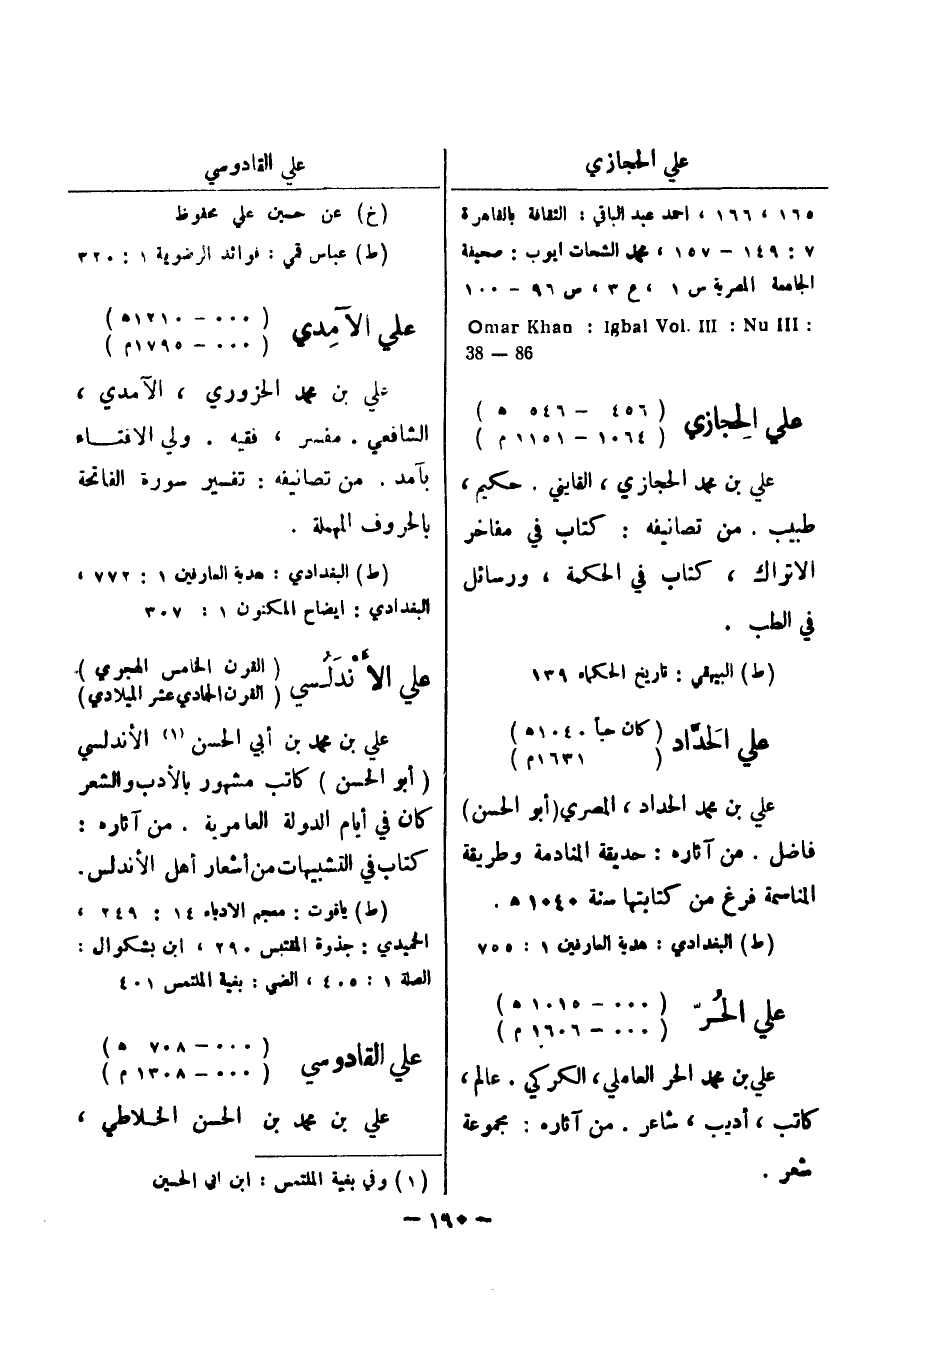 علي الحجازي
١٦٥ ، ١٦٦ ، احمد عبد الباقي : الثقافة بالقاهرة
٧ : ١٤٩ – ١٥٧ ، محمد الشحات ايوب : صحيفة
الجامعة المصرية س ١ ، ع ٣ ، ص ٩٦ – ١٠٠
Omar Khan : Igbal Vol. III : Nu III :
38 — 86
علي الحِجازي ( ٤٥٦ – ٥٤٦ ه )
( ١٠٦٤ – ١١٥١ م )
علي بن محمد الحجازي ، القايني . حكيم ،
طبيب . من تصانيفه : كتاب في مفاخر
الاتراك ، كتاب في الحكمة ، ورسائل
في الطب .
(ط) البيهقي : تاريخ الحكماء ١٣٩
علي الحَدَّاد ( كان حياً ١٠٤٠ه )
( ١٦٣١م )
علي بن محمد الحداد ، المصري (أبو الحسن)
فاضل . من آثاره : حديقة المنادمة وطريقة
المناسمة فرغ من كتابتها سنة ١٠٤٠ ه .
(ط) البغدادي : هدية العارفين ١ : ٧٥٥
علي الحُرّ ( ٠٠٠ – ١٠١٥ ه )
( ٠٠٠ – ١٦٠٦ م )
علي بن محمد الحر العاملي ، الكركي . عالم ،
كاتب ، أديب ، شاعر . من آثاره : مجموعة
شعر .
علي القادوسي
(خ) عن حسين علي محفوظ
(ط) عباس قمي : فوائد الرضوية ١ : ٣٢٠
علي الآمِدي ( ٠٠٠ – ١٢١٠ه )
( ٠٠٠ – ١٧٩٥م )
علي بن محمد الحزوري ، الآمدي ،
الشافعي . مفسر ، فقيه . ولي الافتـــاء
بآمد . من تصانيفه : تفسير سورة الفاتحة
بالحروف المهملة .
(ط) البغدادي : هدية العارفين ١ : ٧٧٢ ،
البغدادي : ايضاح المكنون ١ : ٣٠٧
علي الأَنْدَلُسي ( القرن الخامس الهجري )
( القرن الحادي عشر الميلادي )
علي بن محمد بن أبي الحسن (١) الأندلسي
( أبو الحسن ) كاتب مشهور بالأدب والشعر
كان في أيام الدولة العامرية . من آثاره :
كتاب في التشبيهات من أشعار أهل الأندلس .
(ط) ياقوت : معجم الادباء ١٤ : ٢٤٩ ،
الحميدي : جذوة المقتبس ٢٩٠ ، ابن بشكوال :
الصلة ١ : ٤٠٥ ، الضبي : بغية الملتمس ٤٠١
علي القادوسي ( ٠٠٠ – ٧٠٨ ه )
( ٠٠٠ – ١٣٠٨ م )
علي بن محمد بن الحسن الخلاطي ،
(١) وفي بغية الملتمس : ابن ابي الحسين
– ١٩٠ –